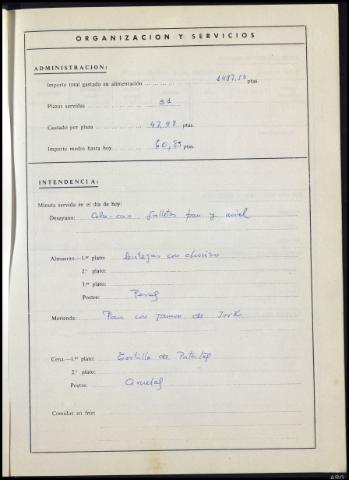 ORGANIZACION Y SERVICIOS
ADMINISTRACION:
Importe total gastado en alimentación 1487,54 ptas.
Plazas servidas 31
Gastado por plaza 47,98 ptas.
Importe medio hasta hoy 60,85 ptas.
INTENDENCIA:
Minuta servida en el día de hoy:
Desayuno: Cola-cao Galletas pan y miel
Almuerzo.—1.er plato: Lentejas con chorizo
2.º plato:
3.er plato:
Postre: Peras
Merienda: Pan con jamon de York
Cena.—1.er plato: Tortilla de Patatas
2.º plato:
Postre: Ciruelas
Comidas en frío: